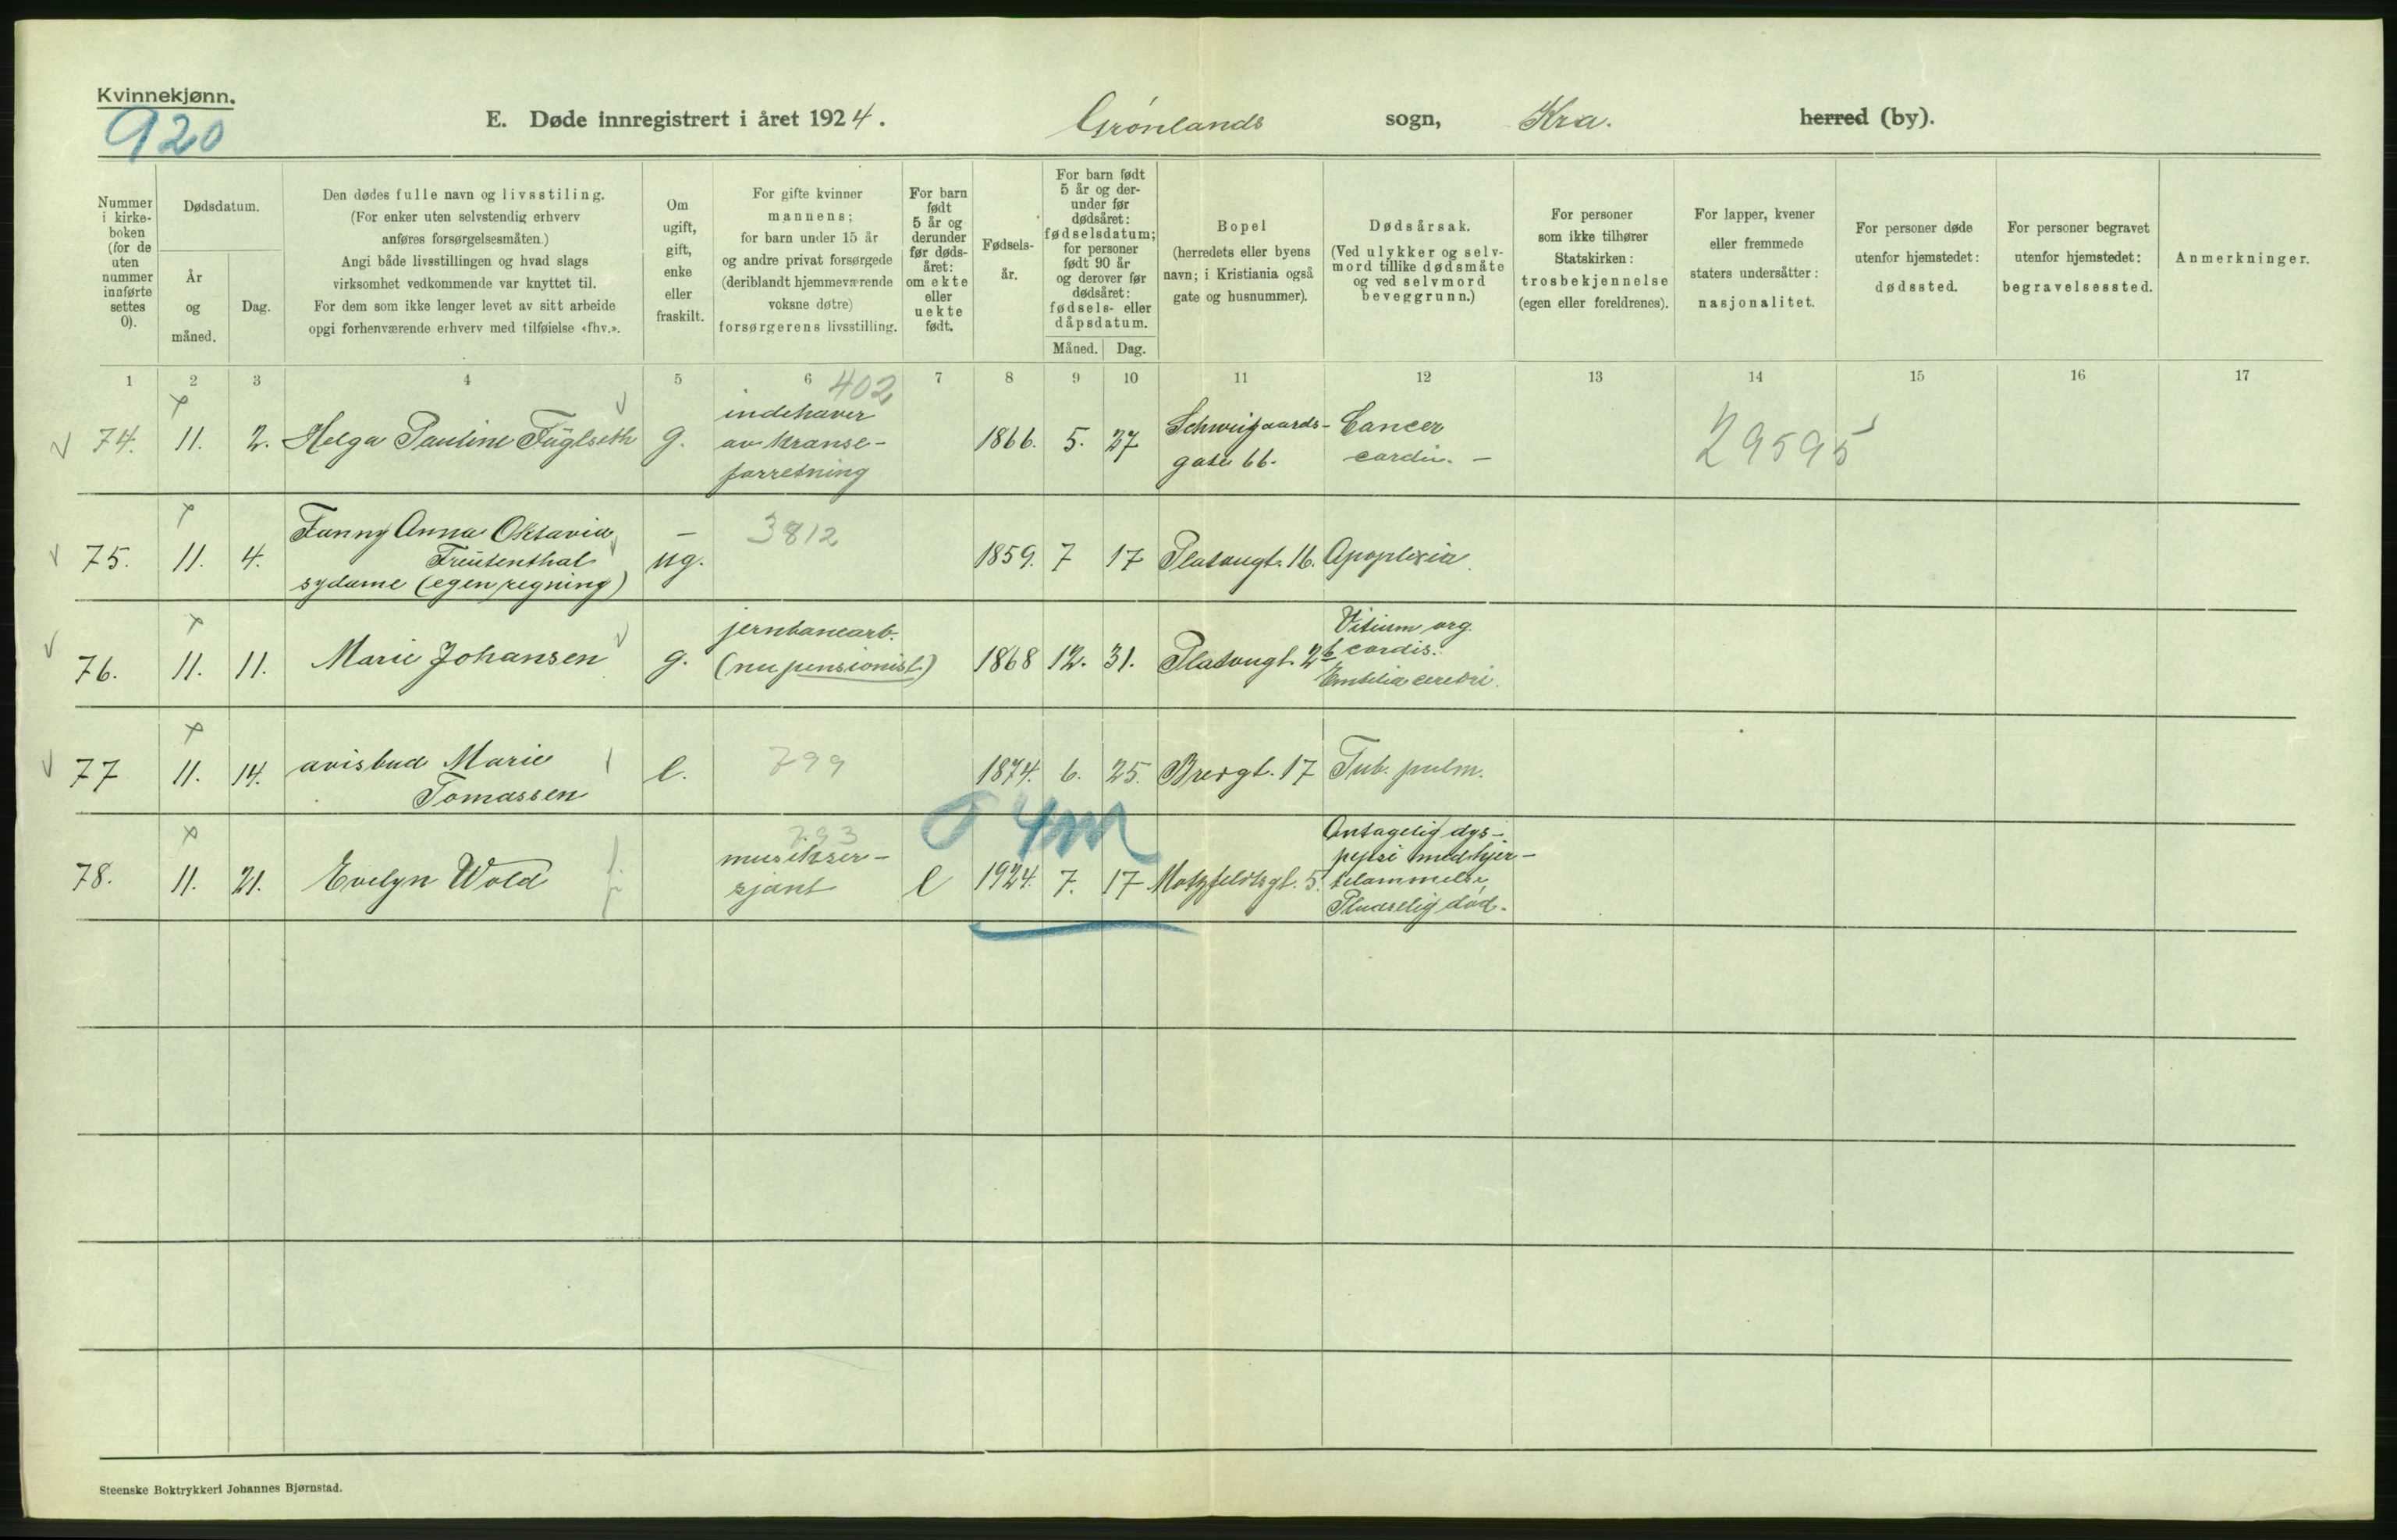 Kvinnekjønn.
920
E. Døde innregistrert i året 1924. Grønlands sogn, Kra. herred (by).
Nummer i kirke- boken (for de uten nummer innførte settes 0).
Dødsdatum.
År og måned.
Dag.
Den dødes fulle navn og livsstiling.
(For enker uten selvstendig erhverv
anføres forsørgelsesmåten.)
Angi både livsstillingen og hvad slags
virksomhet vedkommende var knyttet til.
For dem som ikke lenger levet av sitt arbeide
opgi forhenværende erhverv med tilføielse «fhv.».
Om
ugift,
gift,
enke
eller
fraskilt.
For gifte kvinner
mannens;
for barn under 15 år
og andre privat forsørgede
(deriblandt hjemmeværende
voksne døtre)
forsørgerens livsstilling.
For barn
født
5 år og
derunder
før døds-
året:
om ekte
eller
uekte
født.
Fødsels-
år.
For barn født
5 år og der-
under før
dødsåret:
fødselsdatum;
for personer
født 90 år
og derover før
dødsåret:
fødsels- eller
dåpsdatum.
Måned. Dag.
Bopel
(herredets eller byens
navn; i Kristiania også
gate og husnummer).
Dødsårsak.
(Ved ulykker og selv-
mord tillike dødsmåte
og ved selvmord
beveggrunn.)
For personer
som ikke tilhører
Statskirken:
trosbekjennelse
(egen eller foreldrenes).
For lapper, kvener
eller fremmede
staters undersåtter:
nasjonalitet.
For personer døde
utenfor hjemstedet:
dødssted.
For personer begravet
utenfor hjemstedet:
begravelsessted.
Anmerkninger.
1 2 3 4 5 6 7 8 9 10 11 12 13 14 15 16 17
402
74. 11. 2. Helga Pauline Fuglseth g. indehaver
av kranse-
forretning
1866. 5. 27 Schweigaards-
gate 66.
Cancer
cardiæ. -
29595
75. 11. 4. Fanny Anna Oktavia
Treutenthal
sydame (egen regning)
ug. 3812 1859. 7 17 Platougt. 16. Apoplexia.
76. 11. 11. Marie Johansen g. jernbanearb.
(nu pensionist)
1868 12. 31. Platougt. 26 Vitium org.
cordis.
Embolia cerebri.
77 11. 14. avisbud Marie
Tomassen
e. 799 1874. 6. 25. Breigt. 17 Tub. pulm.
0 4m
793
78. 11. 21. Evelyn Wold musikser-
sjant
e 1924. 7. 17 Motzfeldtsgt. 5. Antagelig dys-
pepsi med hjer-
telammelse,
Pludselig død.
Steenske Boktrykkeri Johannes Bjørnstad.